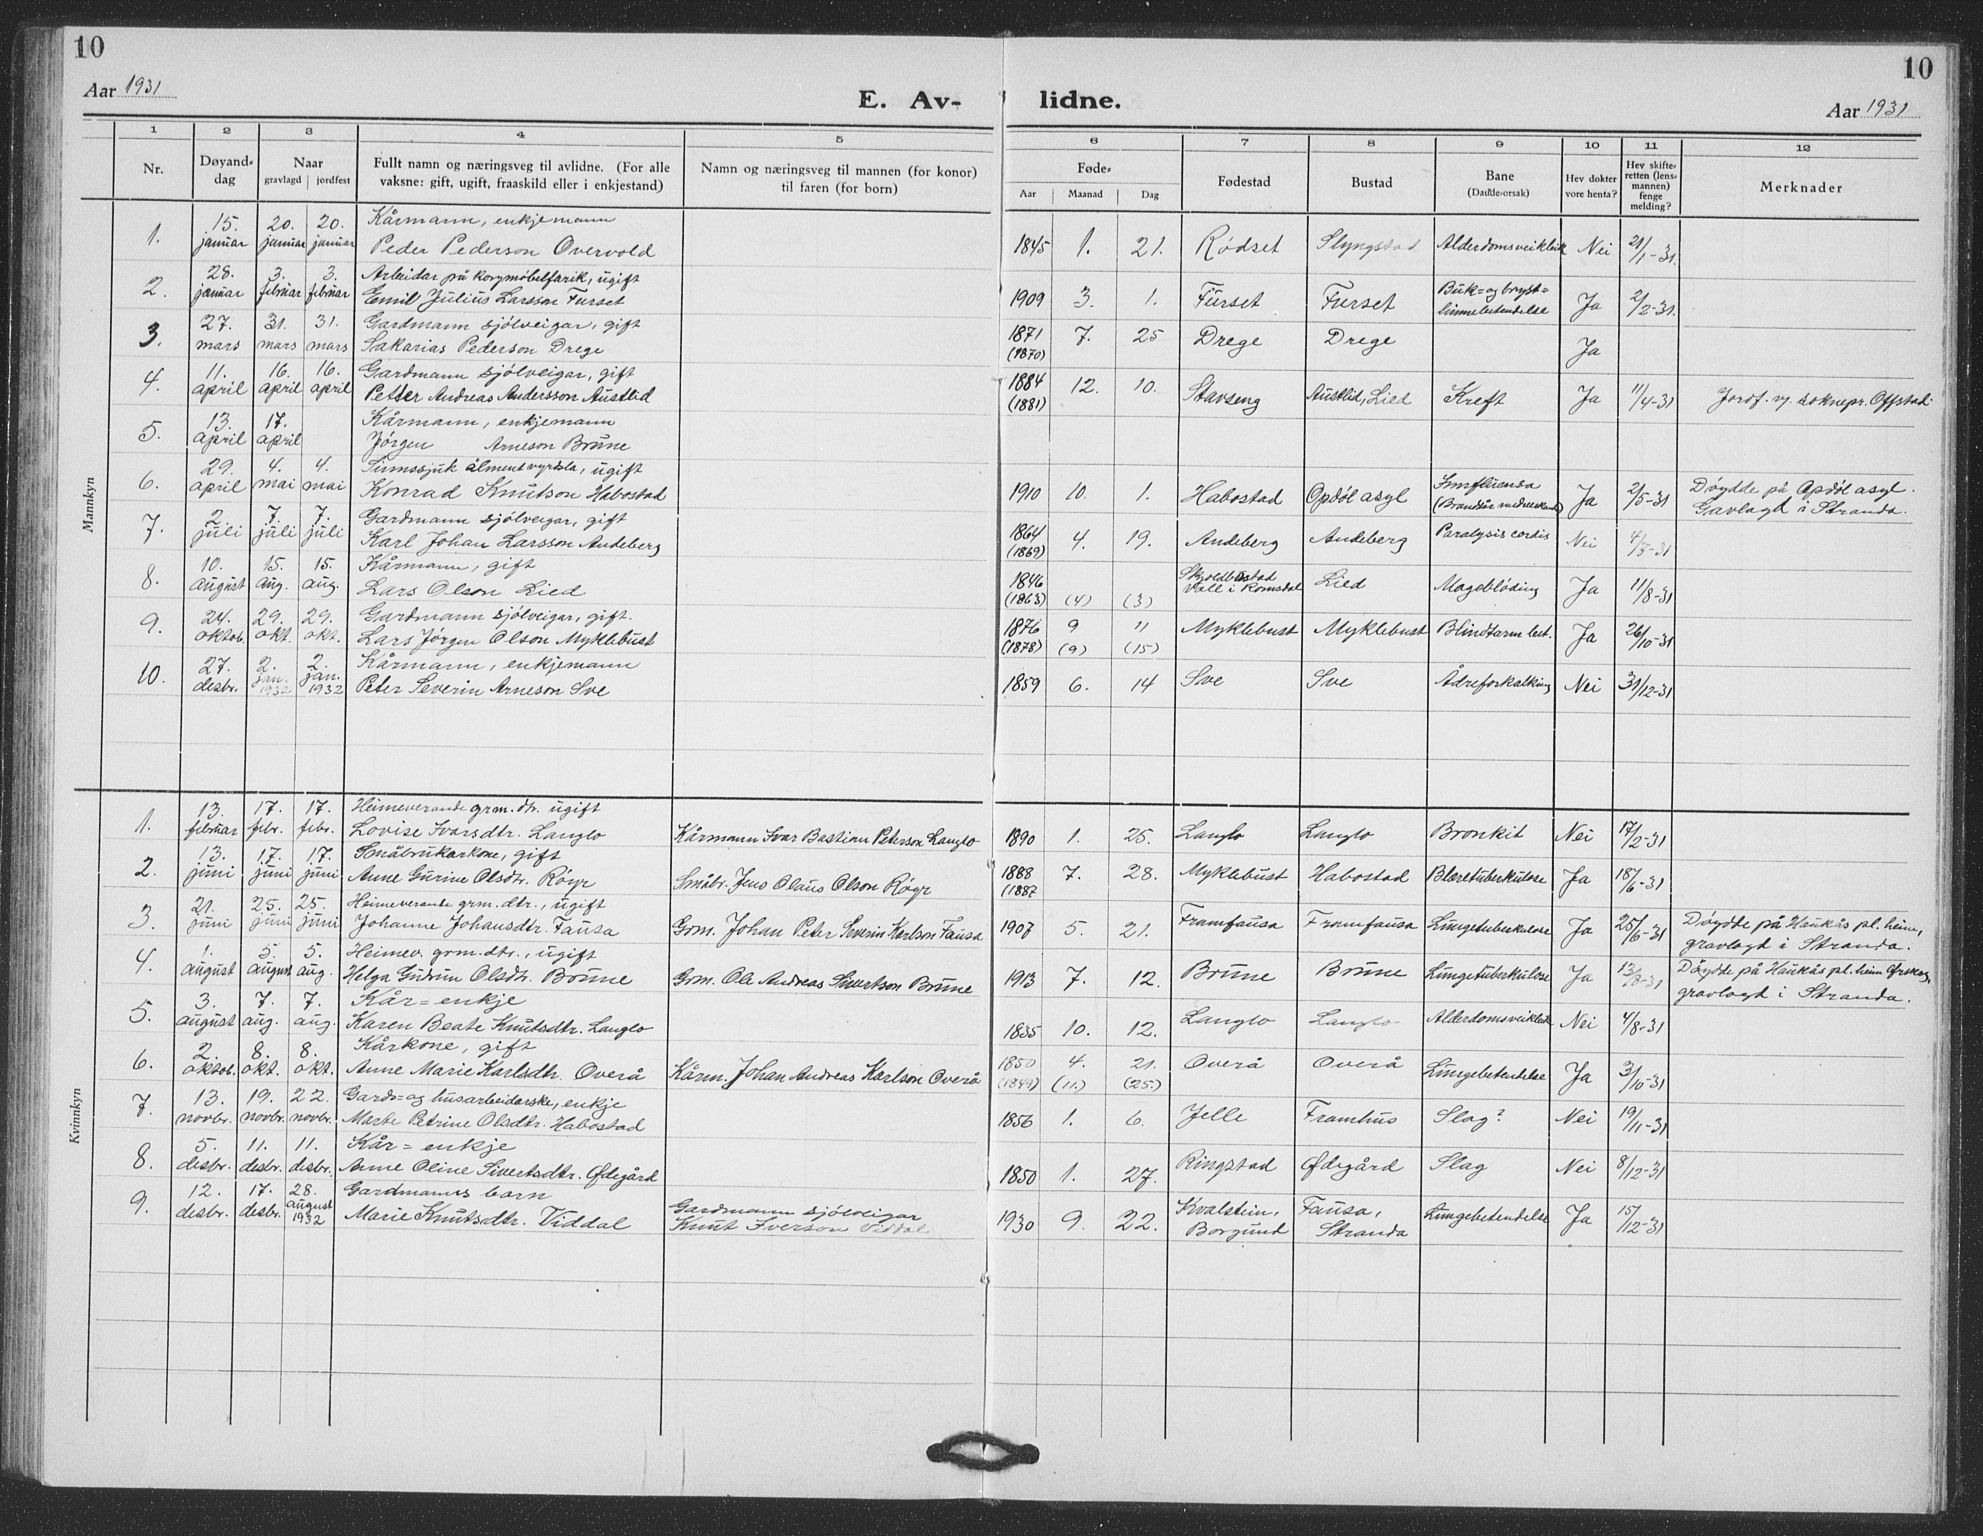 10
10
Aar 1931
E. Av- lidne.
Aar 1931
1 2 3 4 5 6 7 8 9 10 11 12
Nr.
Døyand-dag
Naar gravlagd jordfest
Fullt namn og næringsveg til avlidne. (For alle vaksne: gift, ugift, fraaskild eller i enkjestand)
Namn og næringsveg til mannen (for konor) til faren (for born)
Føde- Aar Maanad Dag
Fødestad
Bustad
Bane (Daudeorsak)
Hev dokter vore henta?
Hev skifteretten (lensmannen) fenge melding?
Merknader
Mannkyn
1. 15. januar 20. januar 20. januar Kårmann, enkjemann
Peder Pederson Overvold 1845 1. 21. Rødset Slyngstad Alderdomsveikleik Nei 21/1-31.
2. 28. januar 3. februar 3. februar Arbeidar på korgmøbelfabrik, ugift
Emil Julius Larsson Furset 1909 3. 1. Furset Furset Buk= og bryst=hinnebetendelse Ja 2/2-31.
3. 27. mars 31. mars 31. mars Gardmann sjølveigar, gift
Sakarias Pederson Drege 1871 (1870) 7. 25 Drege Drege Ja
4. 11. april 16. april 16. april Gardmann sjølveigar, gift
Petter Andreas Andersson Austlid 1884 (1881) 12. 10. Stavseng Austlid, Lied Kreft Ja 11/4-31 Jordf. v. soknepr. Offstad
5. 13. april 17. april Kårmann, enkjemann
Jørgen Arneson Brune
6. 29. april 4. mai 4. mai Sinnssjuk ålment vyrdsla, ugift
Konrad Knutson Habostad 1910 10. 1. Habostad Opdøl asyl Innfluensa Ja 2/5-31 Døydde på Opdøl asyl.
Gravlagd i Stranda.
7. 2. juli 7. juli 7. juli Gardmann sjølveigar, gift
Karl Johan Larsson Andeberg 1864 (1869) 4. 19. Andeberg Andeberg Paralysis cordis Nei
8. 10. august 15. aug. 15. aug. Kårmann, gift
Lars Olson Lied 1846 (1863) (4) (3) Skjoldbustad Voll i Romsdal Lied Magebløding Ja 11/8-31
9. 24. oktob. 29. okt. 29. okt. Gardmann sjølveigar, gift.
Lars Jørgen Olson Myklebust 1876 (1878) 9 (9) 11 (15) Myklebust Myklebust Blindtarm bet. Ja 26/10-31
10. 27. desbr. 2. jan. 1932 2. jan. 1932 Kårmann, enkjemann
Peter Severin Arneson Sve 1859 6. 14 Sve Sve Ådreforkalking Nei 31/12-31
Kvinnkyn
1. 13. februar 17. febr. 17. febr. Heimeverande grm. dtr. ugift
Lovise Ivarsdtr. Langlo Kårmann Ivar Bastian Peterson Langlo 1890 1. 25. Langlo Langlo Bronkit Nei 17/2-31
2. 13. juni 17. juni 17. juni Småbrukarkone, gift
Anne Gurine Olsdtr. Røyr Småbr. Jens Olaus Olson Røyr 1888 (1887 7. 28. Myklebust Habostad Blæretuberkulose Ja 18/6-31
3. 21. juni 25. juni 25. juni Heimeverande grm. dtr., ugift
Johanne Johansdtr. Fausa Grm. Johan Peter Severin Karlson Fausa 1907 5. 21. Framfausa Framfausa Lungetuberkulose Ja 25/6-31 Døydde på Haukås pl. heim,
gravlagd i Stranda.
4. 1. august 5. august 5. aug. Heimev. grm. dtr., ugift
Helga Gudrun Olsdtr. Brune Grm. Ole Andreas Sivertson Brune 1913 7. 12. Brune Brune Lungetuberkulose Ja 13/8-31 Døydde på Haukås pl. heim Ørskog,
gravlagt i Stranda.
5. 3. august 7. aug. 7. aug. Kår=enkje
Karen Beate Knutsdtr. Langlo 1835 10. 12. Langlo Langlo Alderdomsveikleik Nei 4/8-31
6. 2. oktob. 8. okt. 8. okt. Kårkone, gift
Anne Marie Karlsdtr. Overå Kårm. Johan Andreas Karlson Overå 1850 (1849) 4. (11.) 21. (25.) Overå Overå Lungebetendelse Ja 3/10-31
7. 13. novbr. 19. novbr. 22. novbr. Gards=og husarbeidarske, enkje
Marte Petrine Olsdtr. Habostad 1856 1. 6. Jelle Framhus Slag? Nei 19/11-31
8. 5. desbr. 11. desbr. 11. desbr. Kår=enkje
Anne Oline Sivertsdtr. Ødegård 1850 1. 27. Ringstad Ødegård Slag Nei 8/12-31
9. 12. desbr. 17. desbr. 28. august 1932 Gardmanns barn
Marie Knutsdtr. Viddal Gardmann sjølveigar Knut Iverson Viddal 1930 9. 22. Kvalstein, Borgund Fausa, Stranda Lungebetendelse Ja 15/12-31